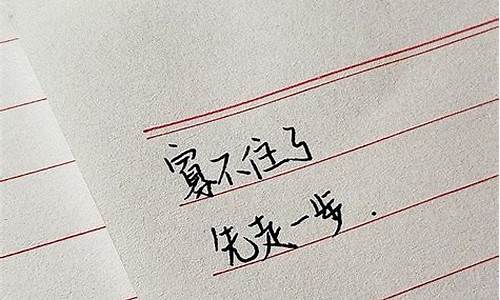 寡不住了
先走一步.